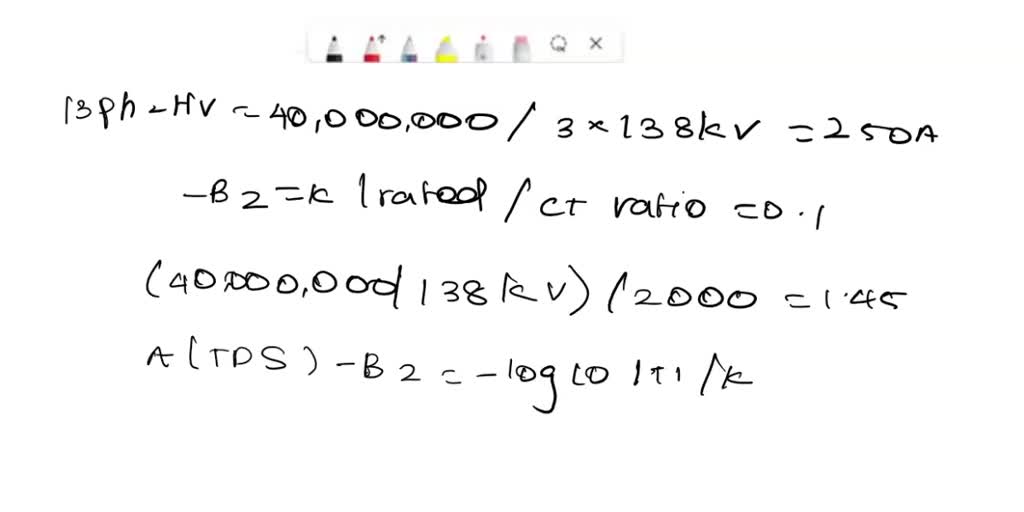 I3ph-HV = 40,000,000 / 3 × 138kV = 250A
-B2 = k Irated / CT ratio = 0.1
(40,000,000/138kV)/2000 = 1.45
A(TDS)-B2 = -log10 ITI/k